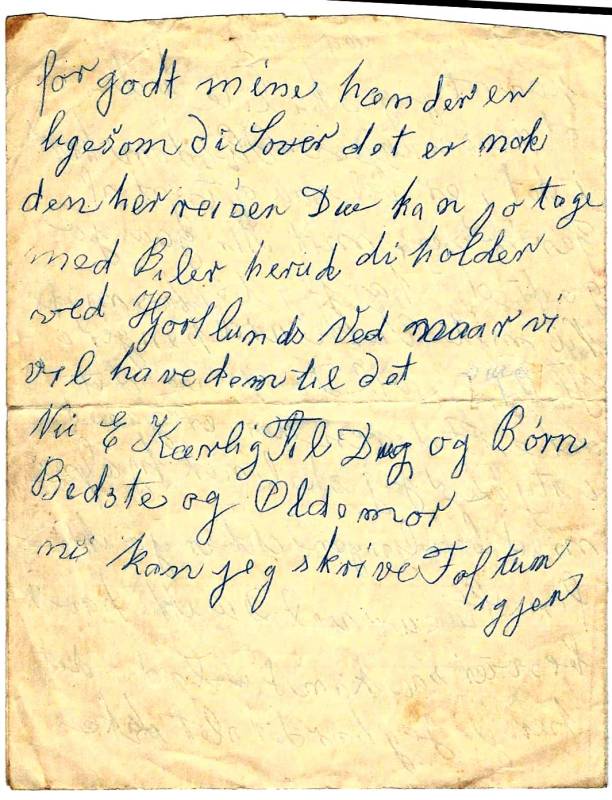 for godt mine hænder er
ligesom di Sover det er nok
den her reisen Du kan jo tage
med Biler herud di holder
ved Hjortlunds Ved naar vi
vil have dem til det
Nu E Kærlig Til Dig og Børn
Bedste og Oldemor
nu kan jeg skrive Toftum
igjen